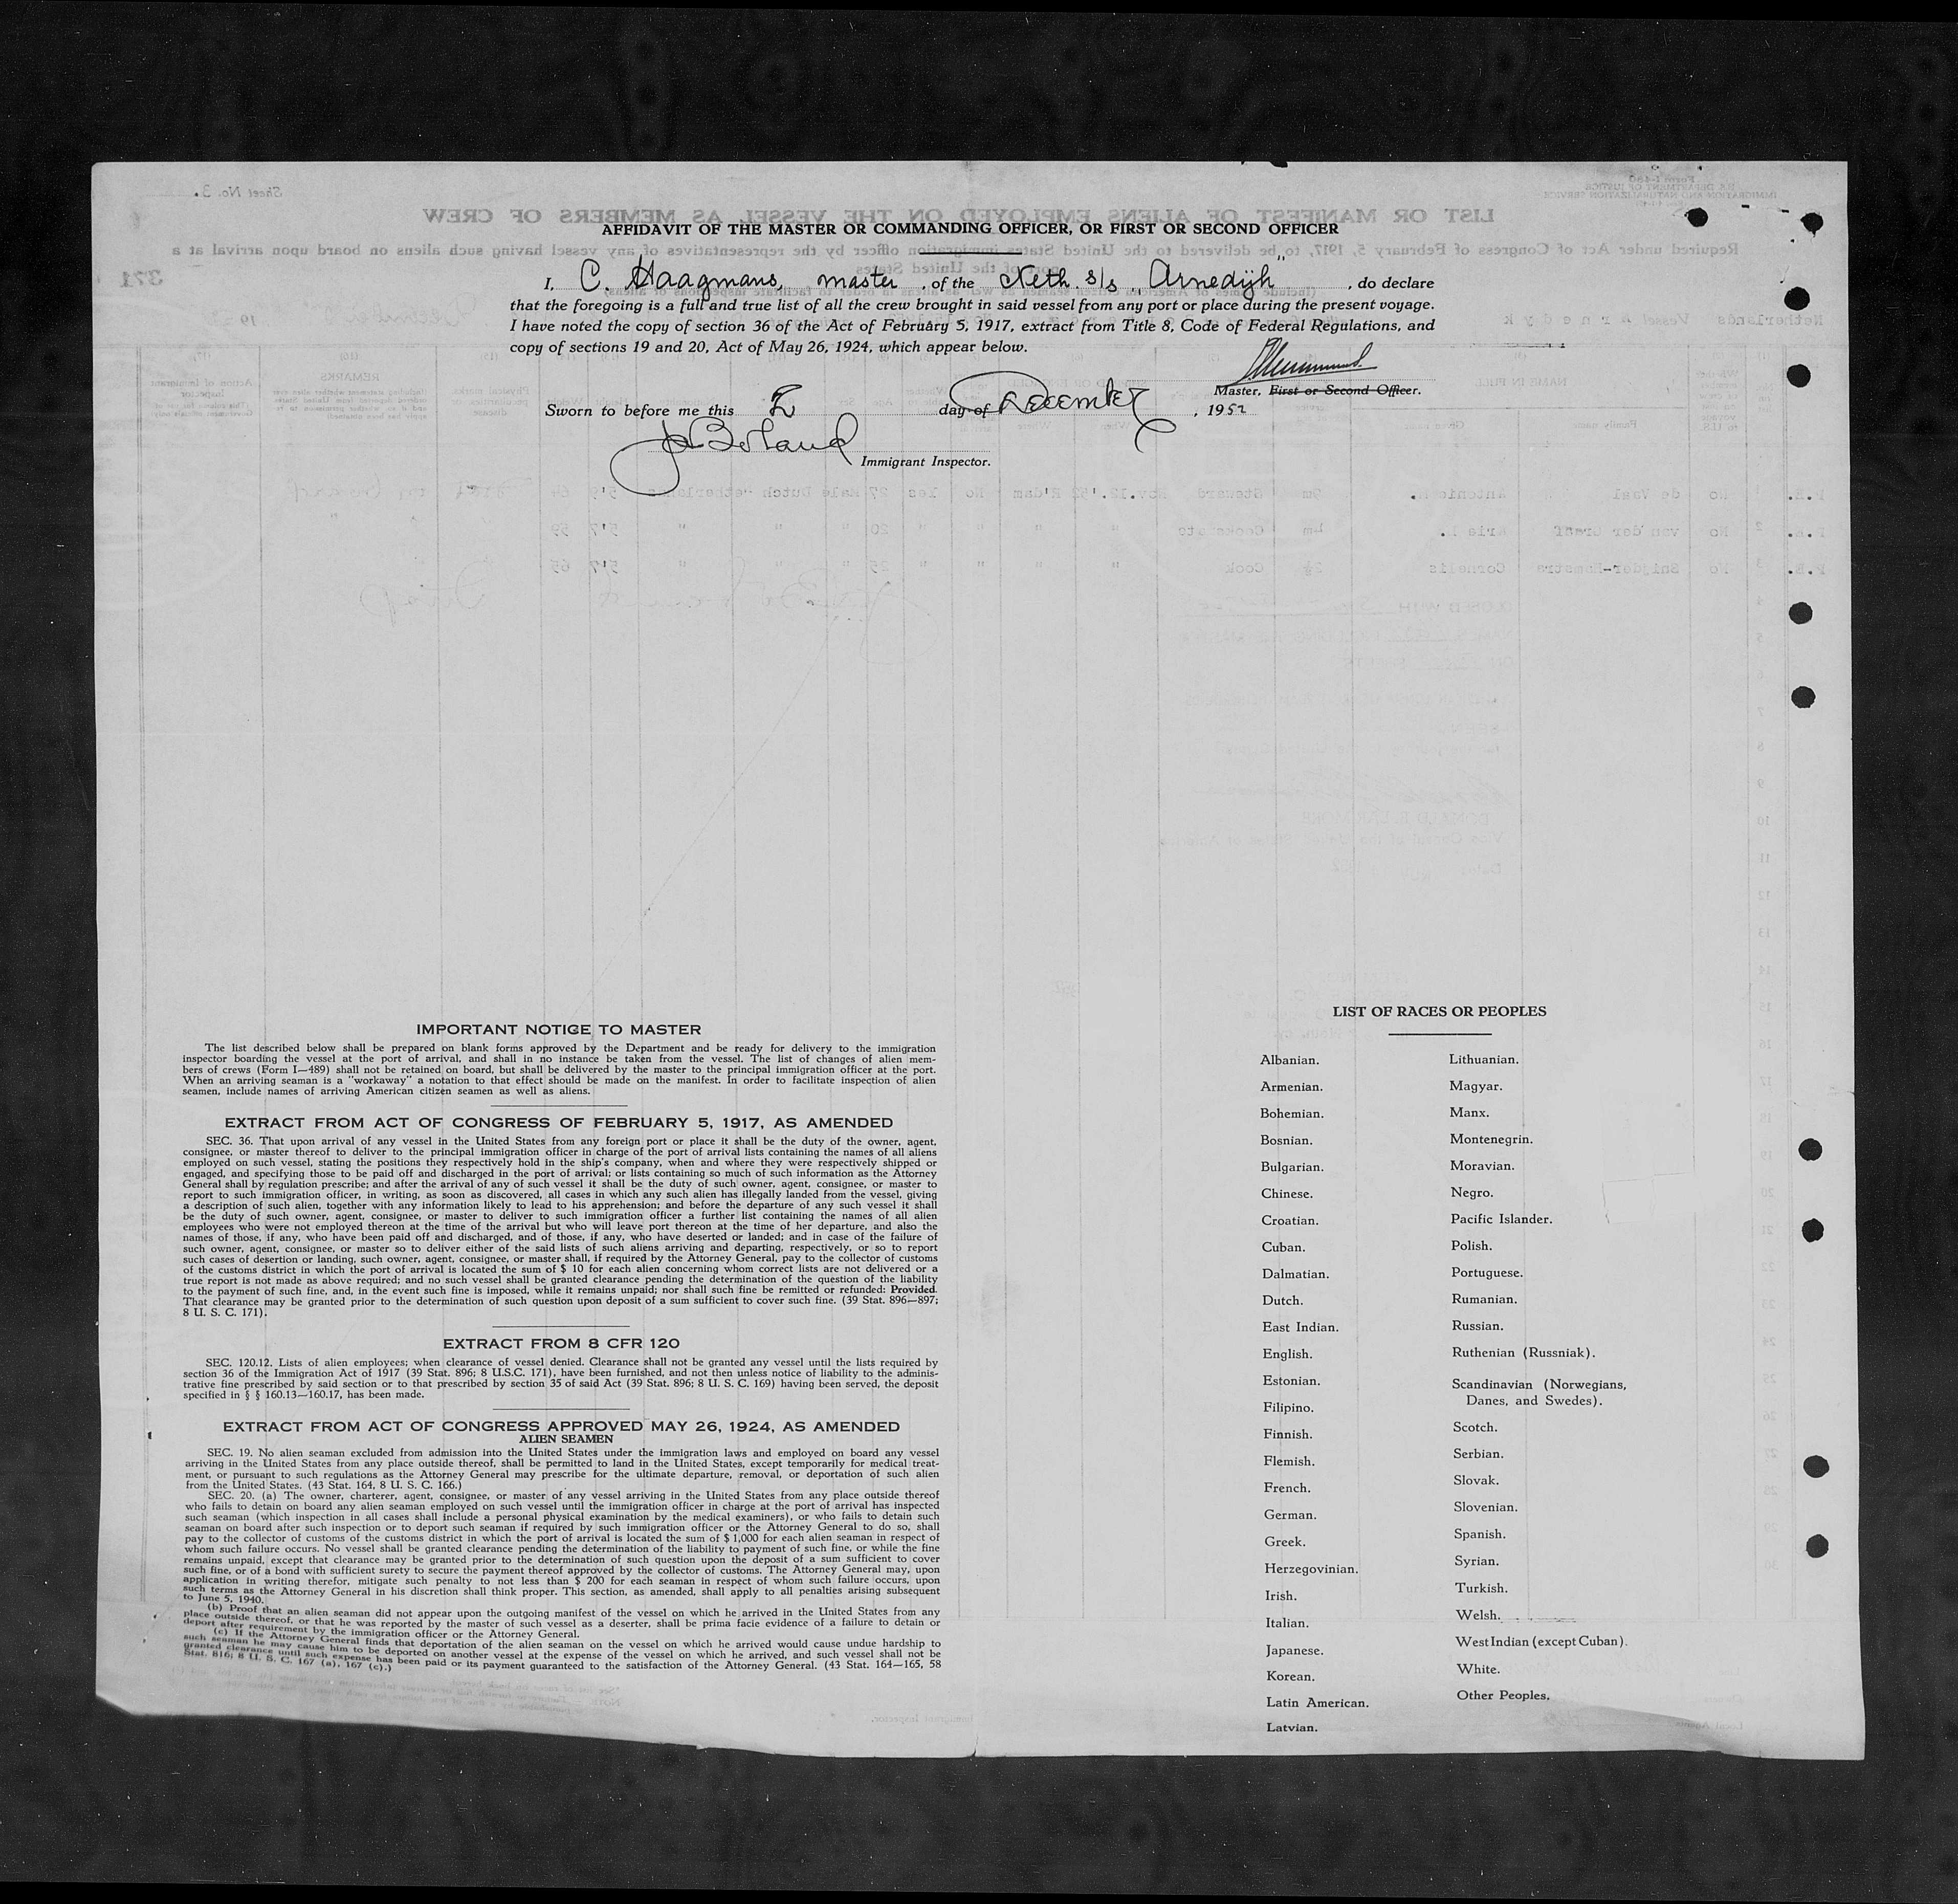 AFFIDAVIT OF THE MASTER OR COMMANDING OFFICER, OR FIRST OR SECOND OFFICER
I, C. Haagmans, master, of the Neth. s/s „Arnedijk", do declare
that the foregoing is a full and true list of all the crew brought in said vessel from any port or place during the present voyage.
I have noted the copy of section 36 of the Act of February 5, 1917, extract from Title 8, Code of Federal Regulations, and
copy of sections 19 and 20, Act of May 26, 1924, which appear below.
Master, First or Second Officer.
Sworn to before me this 2 day of December, 1952
Immigrant Inspector.
IMPORTANT NOTICE TO MASTER
The list described below shall be prepared on blank forms approved by the Department and be ready for delivery to the immigration
inspector boarding the vessel at the port of arrival, and shall in no instance be taken from the vessel. The list of changes of alien mem-
bers of crews (Form I—489) shall not be retained on board, but shall be delivered by the master to the principal immigration officer at the port.
When an arriving seaman is a "workaway" a notation to that effect should be made on the manifest. In order to facilitate inspection of alien
seamen, include names of arriving American citizen seamen as well as aliens.
EXTRACT FROM ACT OF CONGRESS OF FEBRUARY 5, 1917, AS AMENDED
SEC. 36. That upon arrival of any vessel in the United States from any foreign port or place it shall be the duty of the owner, agent,
consignee, or master thereof to deliver to the principal immigration officer in charge of the port of arrival lists containing the names of all aliens
employed on such vessel, stating the positions they respectively hold in the ship's company, when and where they were respectively shipped or
engaged, and specifying those to be paid off and discharged in the port of arrival; or lists containing so much of such information as the Attorney
General shall by regulation prescribe; and after the arrival of any of such vessel it shall be the duty of such owner, agent, consignee, or master to
report to such immigration officer, in writing, as soon as discovered, all cases in which any such alien has illegally landed from the vessel, giving
a description of such alien, together with any information likely to lead to his apprehension; and before the departure of any such vessel it shall
be the duty of such owner, agent, consignee, or master to deliver to such immigration officer a further list containing the names of all alien
employees who were not employed thereon at the time of the arrival but who will leave port thereon at the time of her departure, and also the
names of those, if any, who have been paid off and discharged, and of those, if any, who have deserted or landed; and in case of the failure of
such owner, agent, consignee, or master so to deliver either of the said lists of such aliens arriving and departing, respectively, or so to report
such cases of desertion or landing, such owner, agent, consignee, or master shall, if required by the Attorney General, pay to the collector of customs
of the customs district in which the port of arrival is located the sum of $ 10 for each alien concerning whom correct lists are not delivered or a
true report is not made as above required; and no such vessel shall be granted clearance pending the determination of the question of the liability
to the payment of such fine, and, in the event such fine is imposed, while it remains unpaid; nor shall such fine be remitted or refunded: Provided.
That clearance may be granted prior to the determination of such question upon deposit of a sum sufficient to cover such fine. (39 Stat. 896—897;
8 U. S. C. 171).
EXTRACT FROM 8 CFR 120
SEC. 120.12. Lists of alien employees; when clearance of vessel denied. Clearance shall not be granted any vessel until the lists required by
section 36 of the Immigration Act of 1917 (39 Stat. 896; 8 U.S.C. 171), have been furnished, and not then unless notice of liability to the adminis-
trative fine prescribed by said section or to that prescribed by section 35 of said Act (39 Stat. 896; 8 U. S. C. 169) having been served, the deposit
specified in § § 160.13—160.17, has been made.
EXTRACT FROM ACT OF CONGRESS APPROVED MAY 26, 1924, AS AMENDED
ALIEN SEAMEN
SEC. 19. No alien seaman excluded from admission into the United States under the immigration laws and employed on board any vessel
arriving in the United States from any place outside thereof, shall be permitted to land in the United States, except temporarily for medical treat-
ment, or pursuant to such regulations as the Attorney General may prescribe for the ultimate departure, removal, or deportation of such alien
from the United States. (43 Stat. 164, 8 U. S. C. 166.)
SEC. 20. (a) The owner, charterer, agent, consignee, or master of any vessel arriving in the United States from any place outside thereof
who fails to detain on board any alien seaman employed on such vessel until the immigration officer in charge at the port of arrival has inspected
such seaman (which inspection in all cases shall include a personal physical examination by the medical examiners), or who fails to detain such
seaman on board after such inspection or to deport such seaman if required by such immigration officer or the Attorney General to do so, shall
pay to the collector of customs of the customs district in which the port of arrival is located the sum of $ 1,000 for each alien seaman in respect of
whom such failure occurs. No vessel shall be granted clearance pending the determination of the liability to payment of such fine, or while the fine
remains unpaid, except that clearance may be granted prior to the determination of such question upon the deposit of a sum sufficient to cover
such fine, or of a bond with sufficient surety to secure the payment thereof approved by the collector of customs. The Attorney General may, upon
application in writing therefor, mitigate such penalty to not less than $ 200 for each seaman in respect of whom such failure occurs, upon
such terms as the Attorney General in his discretion shall think proper. This section, as amended, shall apply to all penalties arising subsequent
to June 5, 1940.
(b) Proof that an alien seaman did not appear upon the outgoing manifest of the vessel on which he arrived in the United States from any
place outside thereof, or that he was reported by the master of such vessel as a deserter, shall be prima facie evidence of a failure to detain or
deport after requirement by the immigration officer or the Attorney General.
(c) If the Attorney General finds that deportation of the alien seaman on the vessel on which he arrived would cause undue hardship to
such seaman he may cause him to be deported on another vessel at the expense of the vessel on which he arrived, and such vessel shall not be
granted clearance until such expense has been paid or its payment guaranteed to the satisfaction of the Attorney General. (43 Stat. 164—165, 58
Stat. 816; 8 U. S. C. 167 (a), 167 (c).)
LIST OF RACES OR PEOPLES
Albanian.
Armenian.
Bohemian.
Bosnian.
Bulgarian.
Chinese.
Croatian.
Cuban.
Dalmatian.
Dutch.
East Indian.
English.
Estonian.
Filipino.
Finnish.
Flemish.
French.
German.
Greek.
Herzegovinian.
Irish.
Italian.
Japanese.
Korean.
Latin American.
Latvian.
Lithuanian.
Magyar.
Manx.
Montenegrin.
Moravian.
Negro.
Pacific Islander.
Polish.
Portuguese.
Rumanian.
Russian.
Ruthenian (Russniak).
Scandinavian (Norwegians,
Danes, and Swedes).
Scotch.
Serbian.
Slovak.
Slovenian.
Spanish.
Syrian.
Turkish.
Welsh.
West Indian (except Cuban).
White.
Other Peoples.